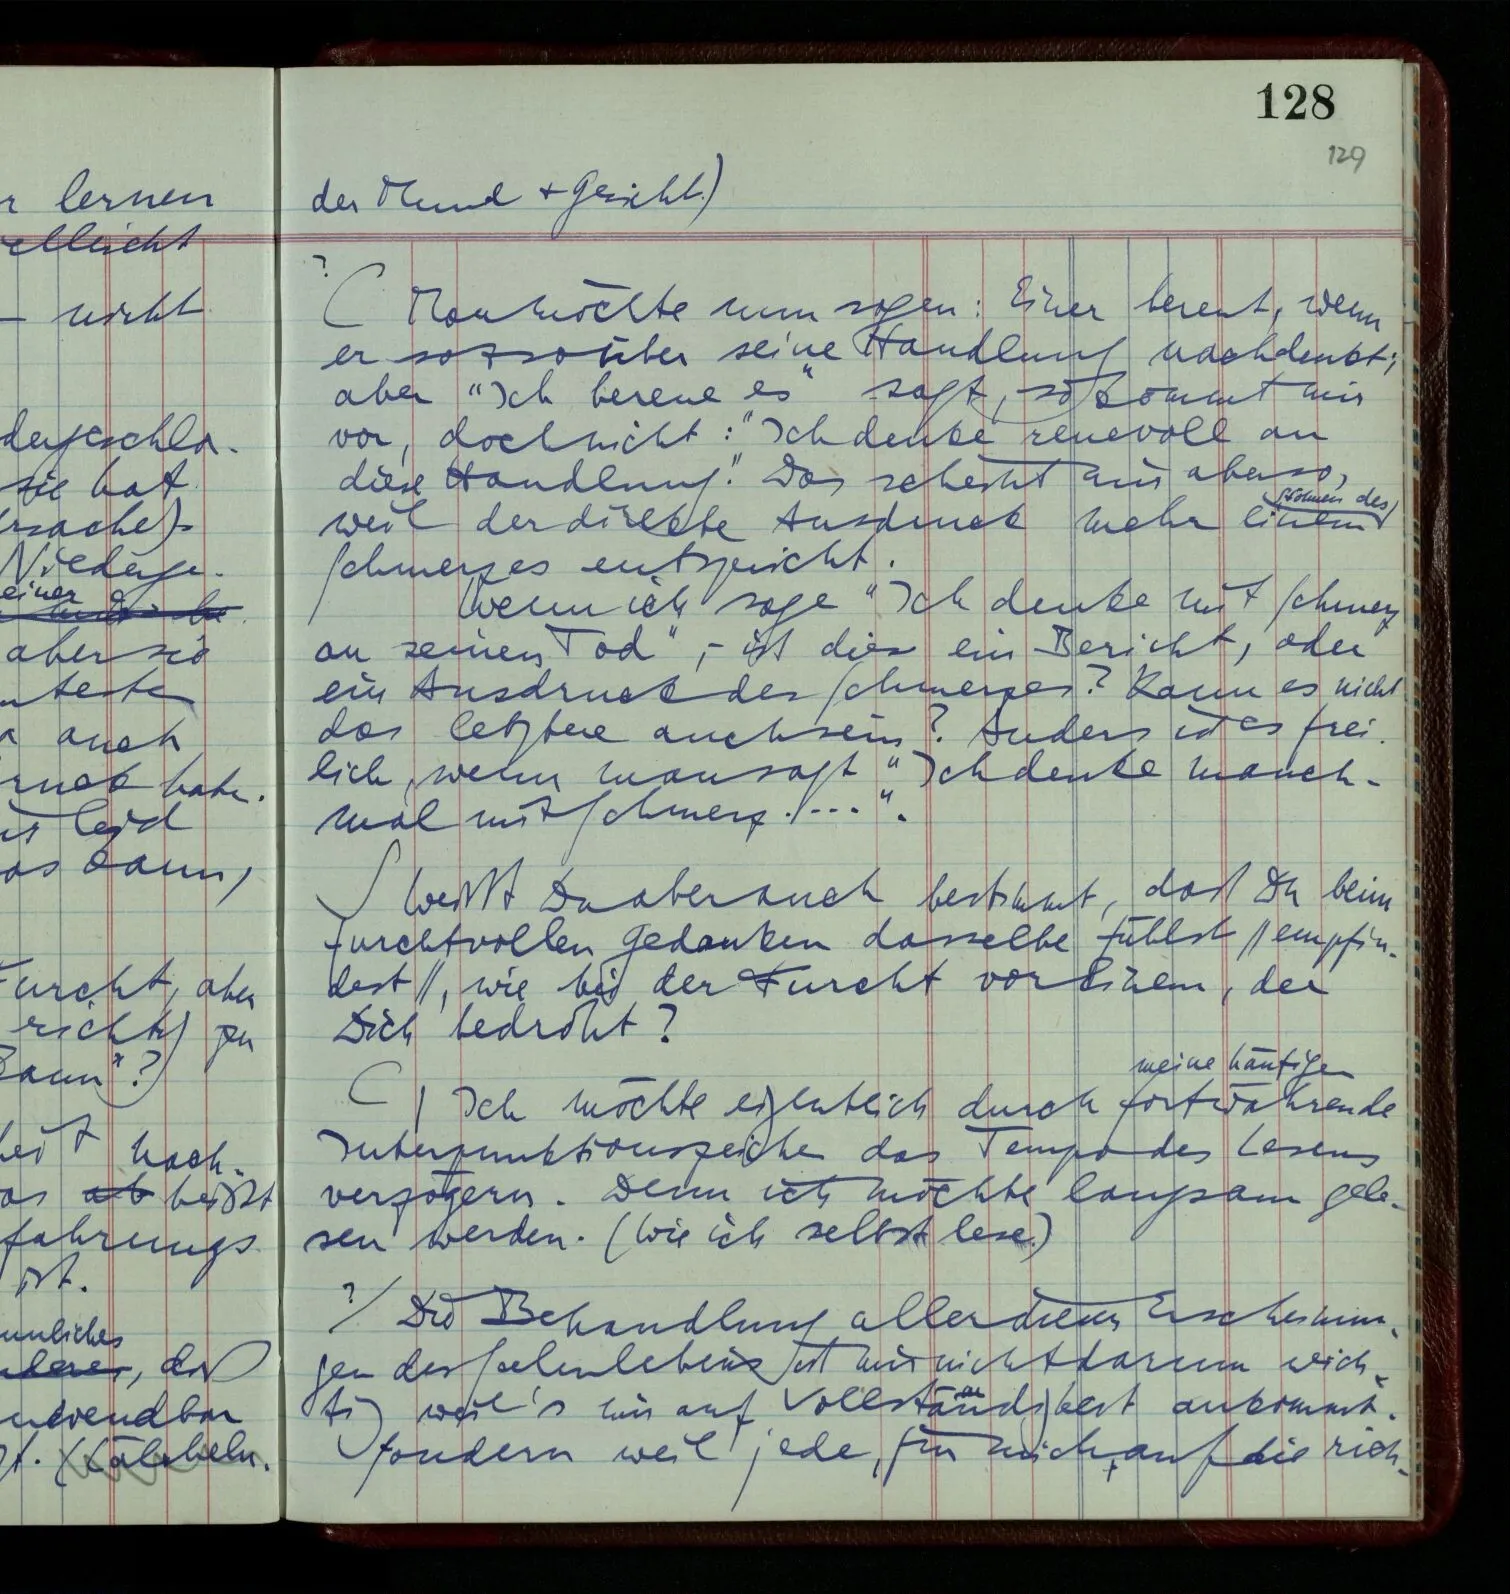 128
129
r lernen
elleicht
– nicht
dergeschla-
sie hat
rsache)
Niederge-
einer
aber sie
auch
ruck habe.
leid
as kann,
Furcht, aber
richt) zu
kann"?)
heit nach-
as ab heißt
fahrungs
ist.
, daß
nwendbar
der Mund + Gesicht.)
? ( Man möchte nun sagen: Einer bereut, wenn
er so & so über seine Handlung nachdenkt;
aber "Ich bereue es" sagt, so kommt mir
vor, doch nicht: "Ich denke reuevoll an
diese Handlung." Das scheint mir aber so,
Stöhnen des
weil der direkte Ausdruck mehr einem
Schmerzes entspricht.
Wenn ich sage "Ich denke mit Schmerz
an seinen Tod", – ist dies ein Bericht, oder
ein Ausdruck des Schmerzes? Kann es nicht
das letztere auch sein? Anders ist es frei-
lich, wenn man sagt "Ich denke manch-
mal mit Schmerz ....".
∫ Weißt Du aber auch bestimmt, daß Du beim
furchtvollen Gedanken dasselbe fühlst // empfin-
dest //, wie bei der Furcht vor Einem, der
Dich bedroht?
meine häufigen
( | Ich möchte eigentlich durch fortwährende
Interpunktionszeichen das Tempo des Lesens
verzögern. Denn ich möchte langsam gele-
sen werden. (Wie ich selbst lese.)
? / Die Behandlung aller dieser Erscheinun-
gen des Seelenlebens ist mir nicht darum wich-
tig weil's mir auf Vollständigkeit ankommt.
Sondern weil jede, für mich, auf die rich-